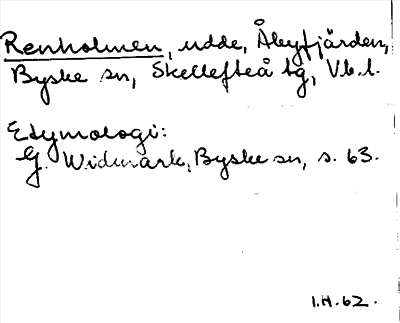 Renholmen, udde, Åbyfjärden,
Byske sn, Skellefteå tg, Vb.l.
Etymologi:
G. Widmark, Byske sn, s. 63.
I.H. 62.